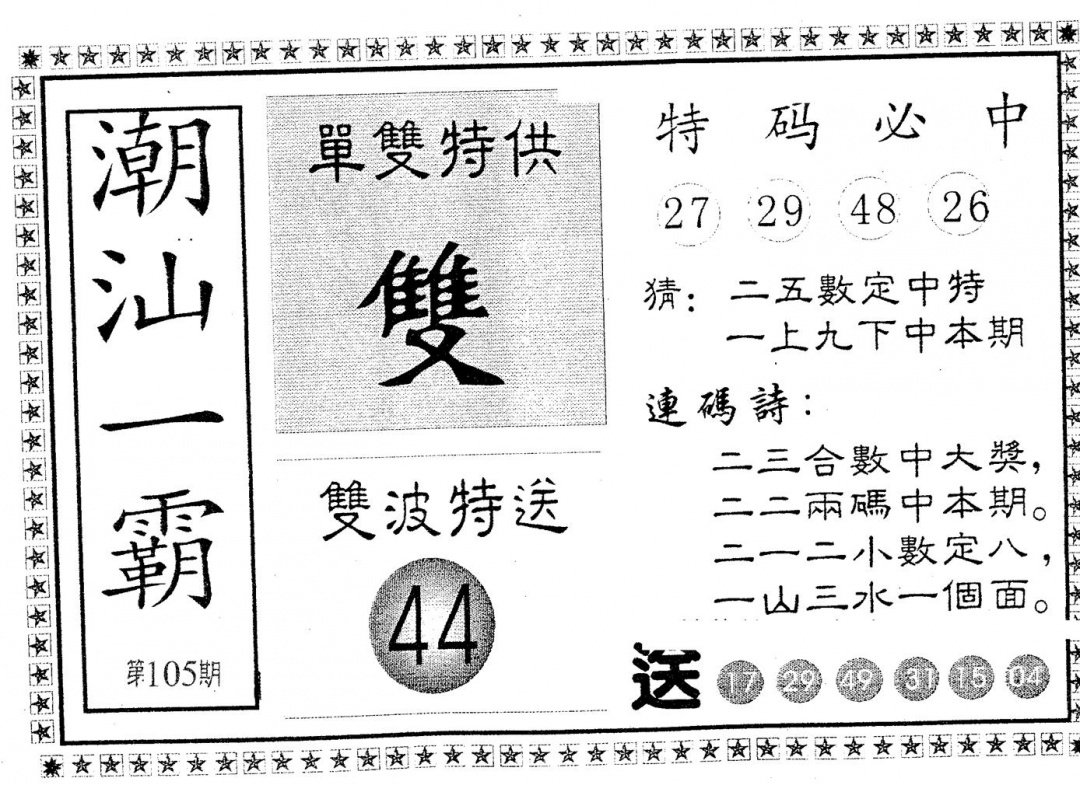 潮汕一霸
第105期
單雙特供
雙
雙波特送
44
特码必中
27 29 48 26
猜：二五數定中特
一上九下中本期
連碼詩：
二三合數中大獎，
二二兩碼中本期。
二一二小數定八，
一山三水一個面。
送 17 29 49 31 15 04